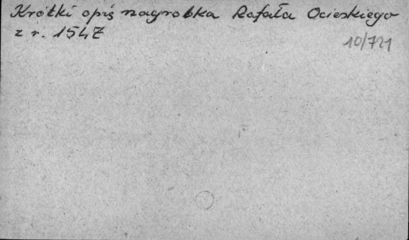 Krótki opis nagrobka Rafała Ocieskiego
z r. 1547
10/721